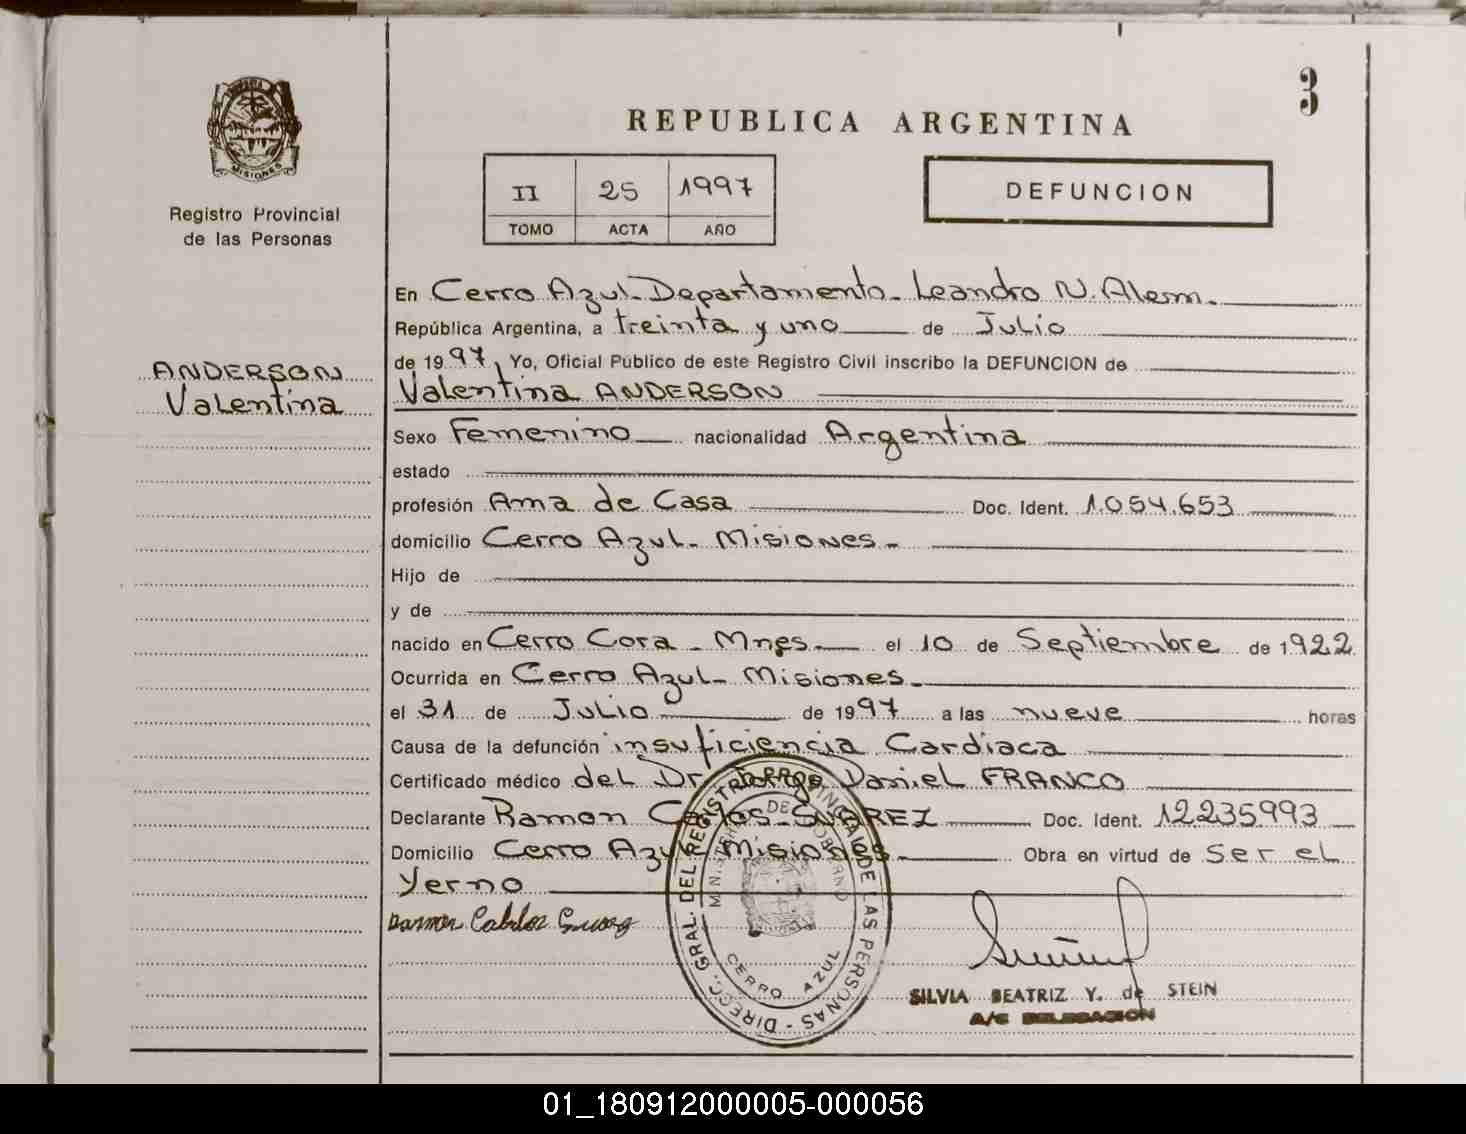 3
REPUBLICA ARGENTINA
PROVINCIA DE
MISIONES
Registro Provincial
de las Personas
II 25 1997
TOMO ACTA AÑO
DEFUNCION
ANDERSON
Valentina
En Cerro Azul-Departamento-Leandro N. Alem.
República Argentina, a treinta y uno de Julio
de 1997, Yo, Oficial Público de este Registro Civil inscribo la DEFUNCION de
Valentina ANDERSON
Sexo Femenino nacionalidad Argentina
estado
profesión Ama de Casa Doc. Ident. 1.054.653
domicilio Cerro Azul-Misiones-
Hijo de
y de
nacido en Cerro Cora-Mnes. el 10 de Septiembre de 1922
Ocurrida en Cerro Azul-Misiones.
el 31 de Julio de 1997 a las nueve horas
Causa de la defunción insuficiencia Cardiaca
Certificado médico del Dr. Jorge Daniel FRANCO
Declarante Ramon Carlos-SUAREZ Doc. Ident. 12.235.993
Domicilio Cerro Azul-Misiones- Obra en virtud de Ser el
Yerno
DIRECC. GRAL. DEL REGISTRO PROVINCIAL DE LAS PERSONAS -
MINISTERIO DE GOBIERNO
CERRO AZUL
SILVIA BEATRIZ Y. de STEIN
A/C DELEGACION
01_180912000005-000056